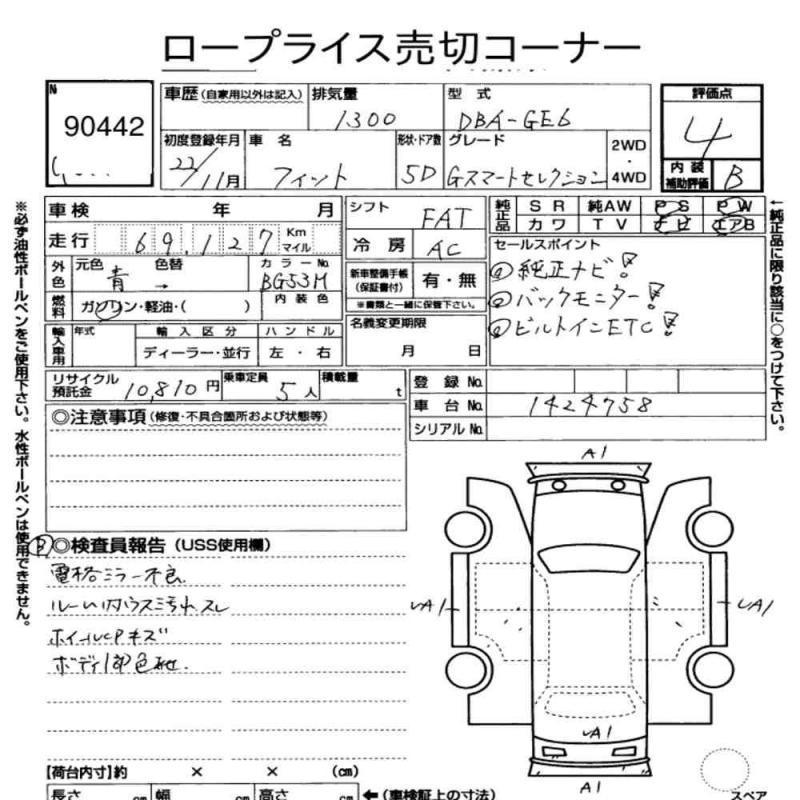 ロープライス売切コーナー
N 90442
車歴 (自家用以外は記入) 排気量 1300 型式 DBA-GE6 評価点 4
初度登録年月 22/11月 車名 フィット 形状・ドア数 5D グレード Gスマートセレクション 2WD・4WD 内装補助評価 B
車検 年 月 シフト FAT 純正品 SR 純AW PS PW
カワ TV ナビ エアB
走行 69,127 Km マイル 冷房 AC セールスポイント
外色 元色 青 色替 → カラーNo. BG53M 新車整備手帳(保証書付) 有・無 ①純正ナビ!
内装色 ※書類と一緒に保管下さい。 ②バックモニター!
燃料 ガソリン・軽油・( ) ③ビルトインETC!
輸入車用 年式 輸入区分 ハンドル 名義変更期限
ディーラー・並行 左・右 月 日
リサイクル預託金 10,810円 乗車定員 5人 積載量 t 登録No.
車台No. 1424758
シリアルNo.
◎注意事項 (修復・不具合箇所および状態等)
◎検査員報告 (USS使用欄)
電格ミラー不良
ルーム内ウスミ汚れスレ
ホイールCPキズ
ボディ1部色
A1
A1
A1
A1
A1
【荷台内寸】約 × × (cm)
長さ cm 幅 cm 高さ cm ←(車検証上の寸法)
スペア
※必ず油性ボールペンをご使用下さい。水性ボールペンは使用できません。
←純正品に限り該当に○をつけて下さい。